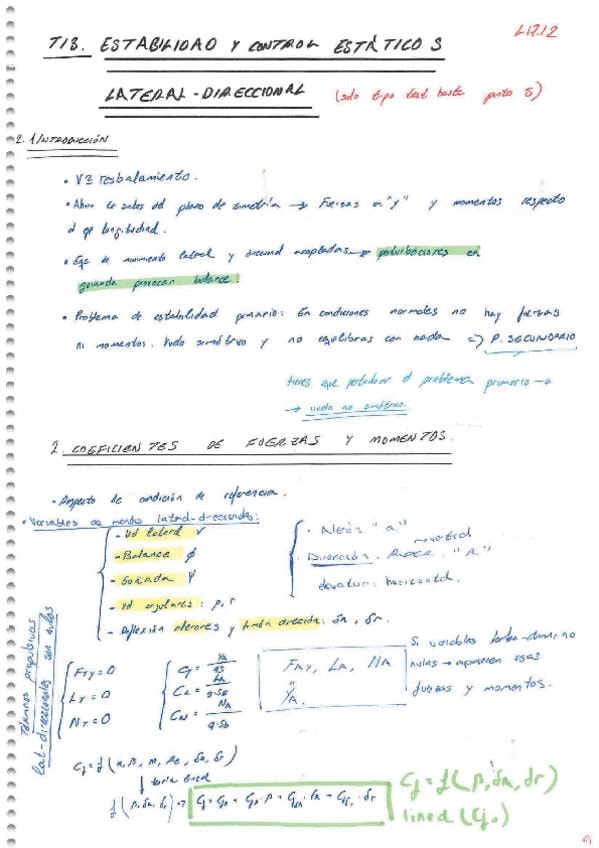 L17.12
T13. ESTABILIDAD Y CONTROL ESTÁTICOS
LATERAL-DIRECCIONAL (solo tipo test hasta punto 5)
2.1/INTRODUCCIÓN
• resbalamiento.
• Ahora se sales del plano de simetría → Fuerzas en "y" y momentos respecto
al eje longitudinal.
• Ejes de movimiento lateral y direccional acoplados → perturbaciones en
guiñada provocan balance.
• Problema de estabilidad primario: En condiciones normales no hay fuerzas
ni momentos. Vuelo simétrico y no equilibras con nada => P. SECUNDARIO
tienes que perturbar el problema primario →
→ vuelo no simétrico.
2. COEFICIENTES DE FUERZAS Y MOMENTOS.
• Respecto de condición de referencia.
• Variables de mando lateral-direccionales:
- Vd lateral v
- Balance ϕ
- Guiñada ψ
- Vd angulares: p, r
- Deflexión alerones y timón dirección: δa, δr.
• Alerón "a"
Dirección. RUDDER. "R" vertical
elevator: horizontal.
Términos propulsivos
lat-direccionales son nulos
FTy = 0
LT = 0
NT = 0
Cy = YA / qS
CL = LA / q·Sb
CN = NA / q·Sb
FAy, LA, NA
" YA.
Si variables later-direc no
nulas → aparecen esas
fuerzas y momentos.
Cj = f(α, β, M, Re, δa, δr)
↓ teoría lineal
f(β, δa, δr) → Cj = Cj0 + Cjβ · β + Cjδa · δa + Cjδr · δr
Cj = f(β, δa, δr)
lineal (Cj0)